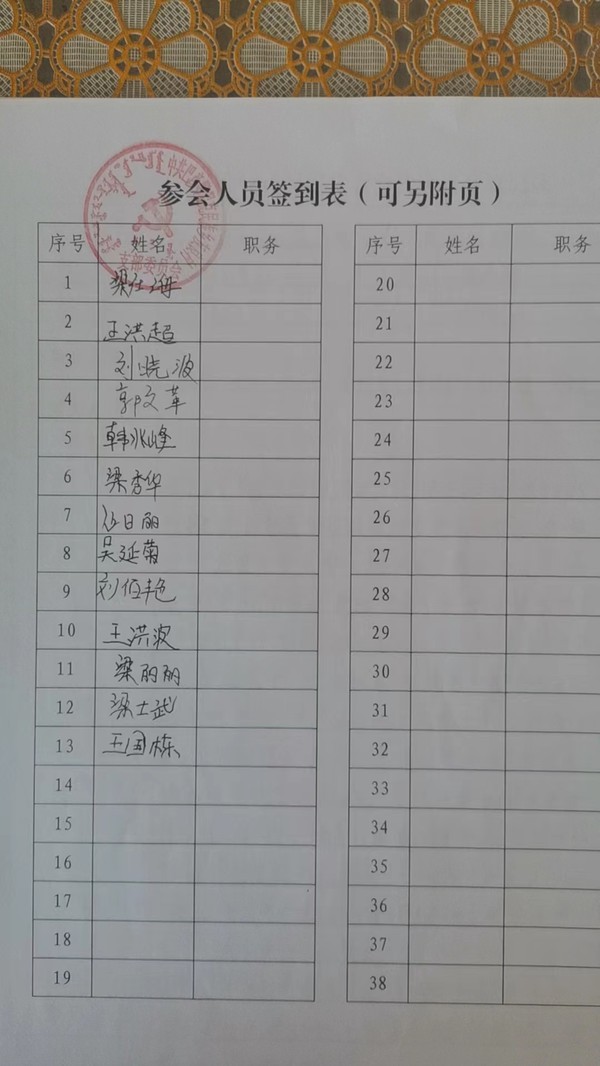 参会人员签到表（可另附页）
支部委员会
序号 姓名 职务
1 梁仕海
2 王洪超
3 刘晓波
4 郭文革
5 韩兆峰
6 梁秀华
7 日丽
8 吴延菊
9 刘伯艳
10 王洪波
11 梁丽丽
12 梁士武
13 王国栋
14
15
16
17
18
19
序号 姓名 职务
20
21
22
23
24
25
26
27
28
29
30
31
32
33
34
35
36
37
38